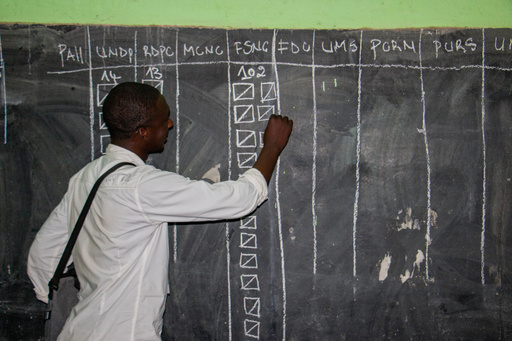 PAH UNDP RDPC MCNC FSNC FDC UMS PCRN PURS
14 13 102